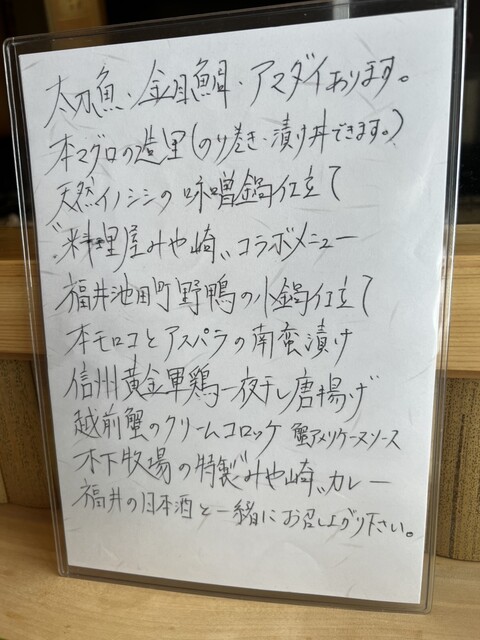 太刀魚・金目鯛・アマダイあります。
本マグロの造里(のり巻き・漬け丼できます。)
天然イノシシの味噌鍋仕立て
"料理屋みや崎"コラボメニュー
福井池田町野鴨の小鍋仕立て
本モロコとアスパラの南蛮漬け
信州黄金軍鶏一夜干し唐揚げ
越前蟹のクリームコロッケ 蟹アメリケーヌソース
木下牧場の特製"みや崎"カレー
福井の日本酒と一緒にお召し上がり下さい。